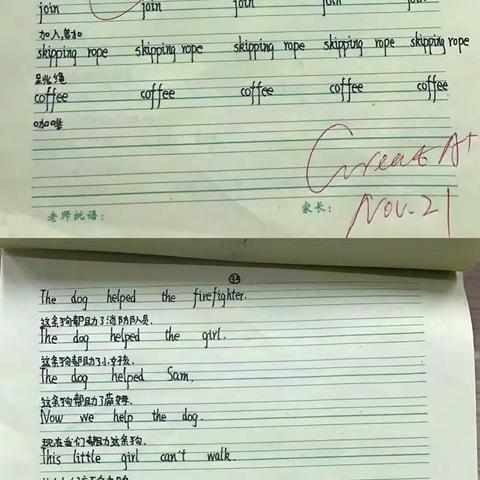 join join join join join
加入,参加
skipping rope skipping rope skipping rope skipping rope skipping rope
跳绳
coffee coffee coffee coffee coffee
咖啡
Great A+
老师批语: 家长: Nov. 21
The dog helped the firefighter.
这条狗帮助了消防队员.
The dog helped the girl.
这条狗帮助了小女孩.
The dog helped Sam.
这条狗帮助了萨姆.
Now we help the dog.
现在我们帮助这条狗.
This little girl can't walk.